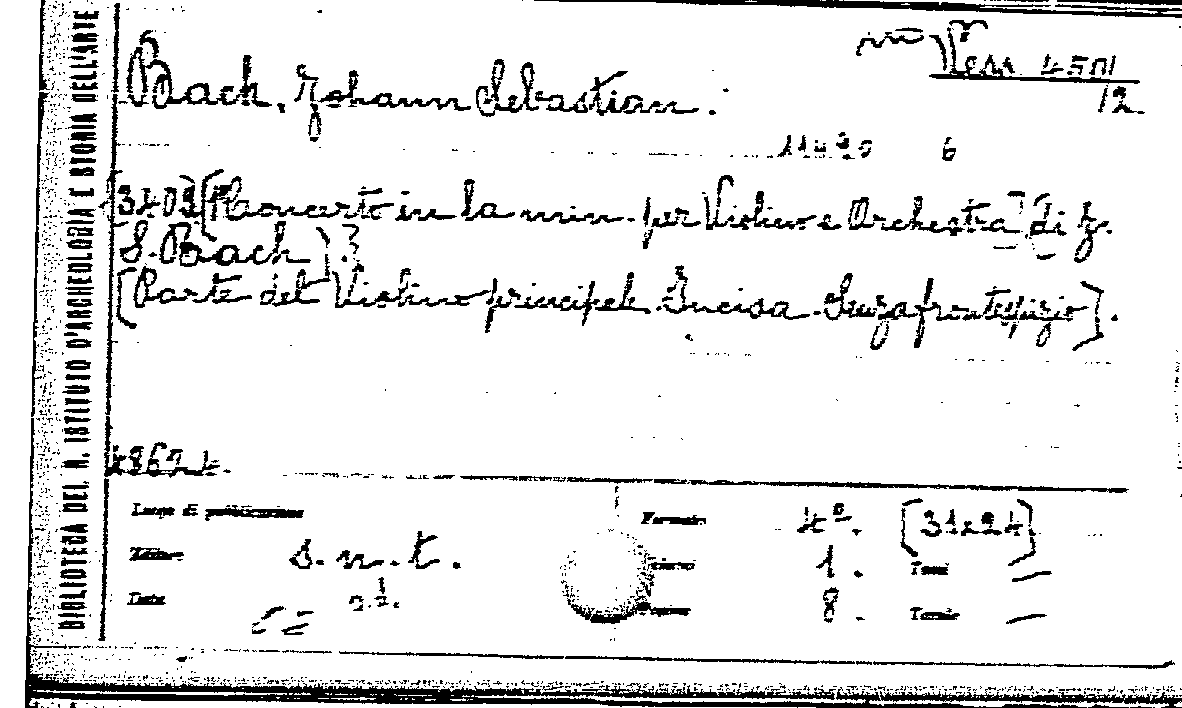 BIBLIOTECA DEL R. ISTITUTO D'ARCHEOLOGIA E STORIA DELL'ARTE
m Vess 450/
12
Bach, Johann Sebastian.
11420 6
[3403] [Concerto in la min. per Violino e Orchestra] di J.
S. Bach
[Parte del Violino principale. Incisa. Senza frontespizio].
48624.
Luogo di pubblicazione
Formato 4º. [31x24]
Editore s.n.t.
Volumi 1. Tomi —
Data s.d.
Pagine 8. Tavole —